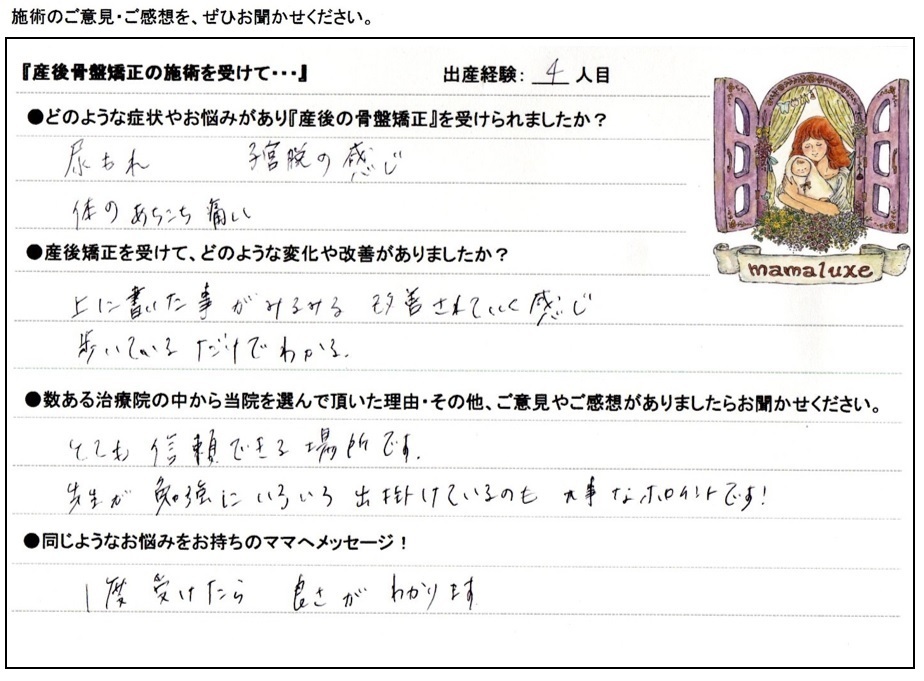 施術のご意見・ご感想を、ぜひお聞かせください。
『産後骨盤矯正の施術を受けて・・・』 出産経験: 4 人目
●どのような症状やお悩みがあり『産後の骨盤矯正』を受けられましたか？
尿もれ 子宮脱の感じ
体のあちこち痛い
●産後矯正を受けて、どのような変化や改善がありましたか？
mamaluxe
上に書いた事がみるみる 改善されていく感じ
歩いているだけでわかる.
●数ある治療院の中から当院を選んで頂いた理由・その他、ご意見やご感想がありましたらお聞かせください。
とても信頼できる場所です.
先生が勉強にいろいろ出掛けているのも大事なポイントです!
●同じようなお悩みをお持ちのママへメッセージ！
1度受けたら 良さがわかります